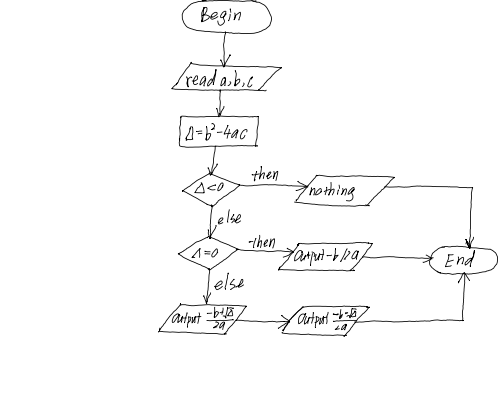 Begin
read a, b, c
Δ=b²-4ac
Δ<0
then
nothing
else
Δ=0
then
output -b/2a
End
else
output (-b+√Δ)/2a
output (-b-√Δ)/2a